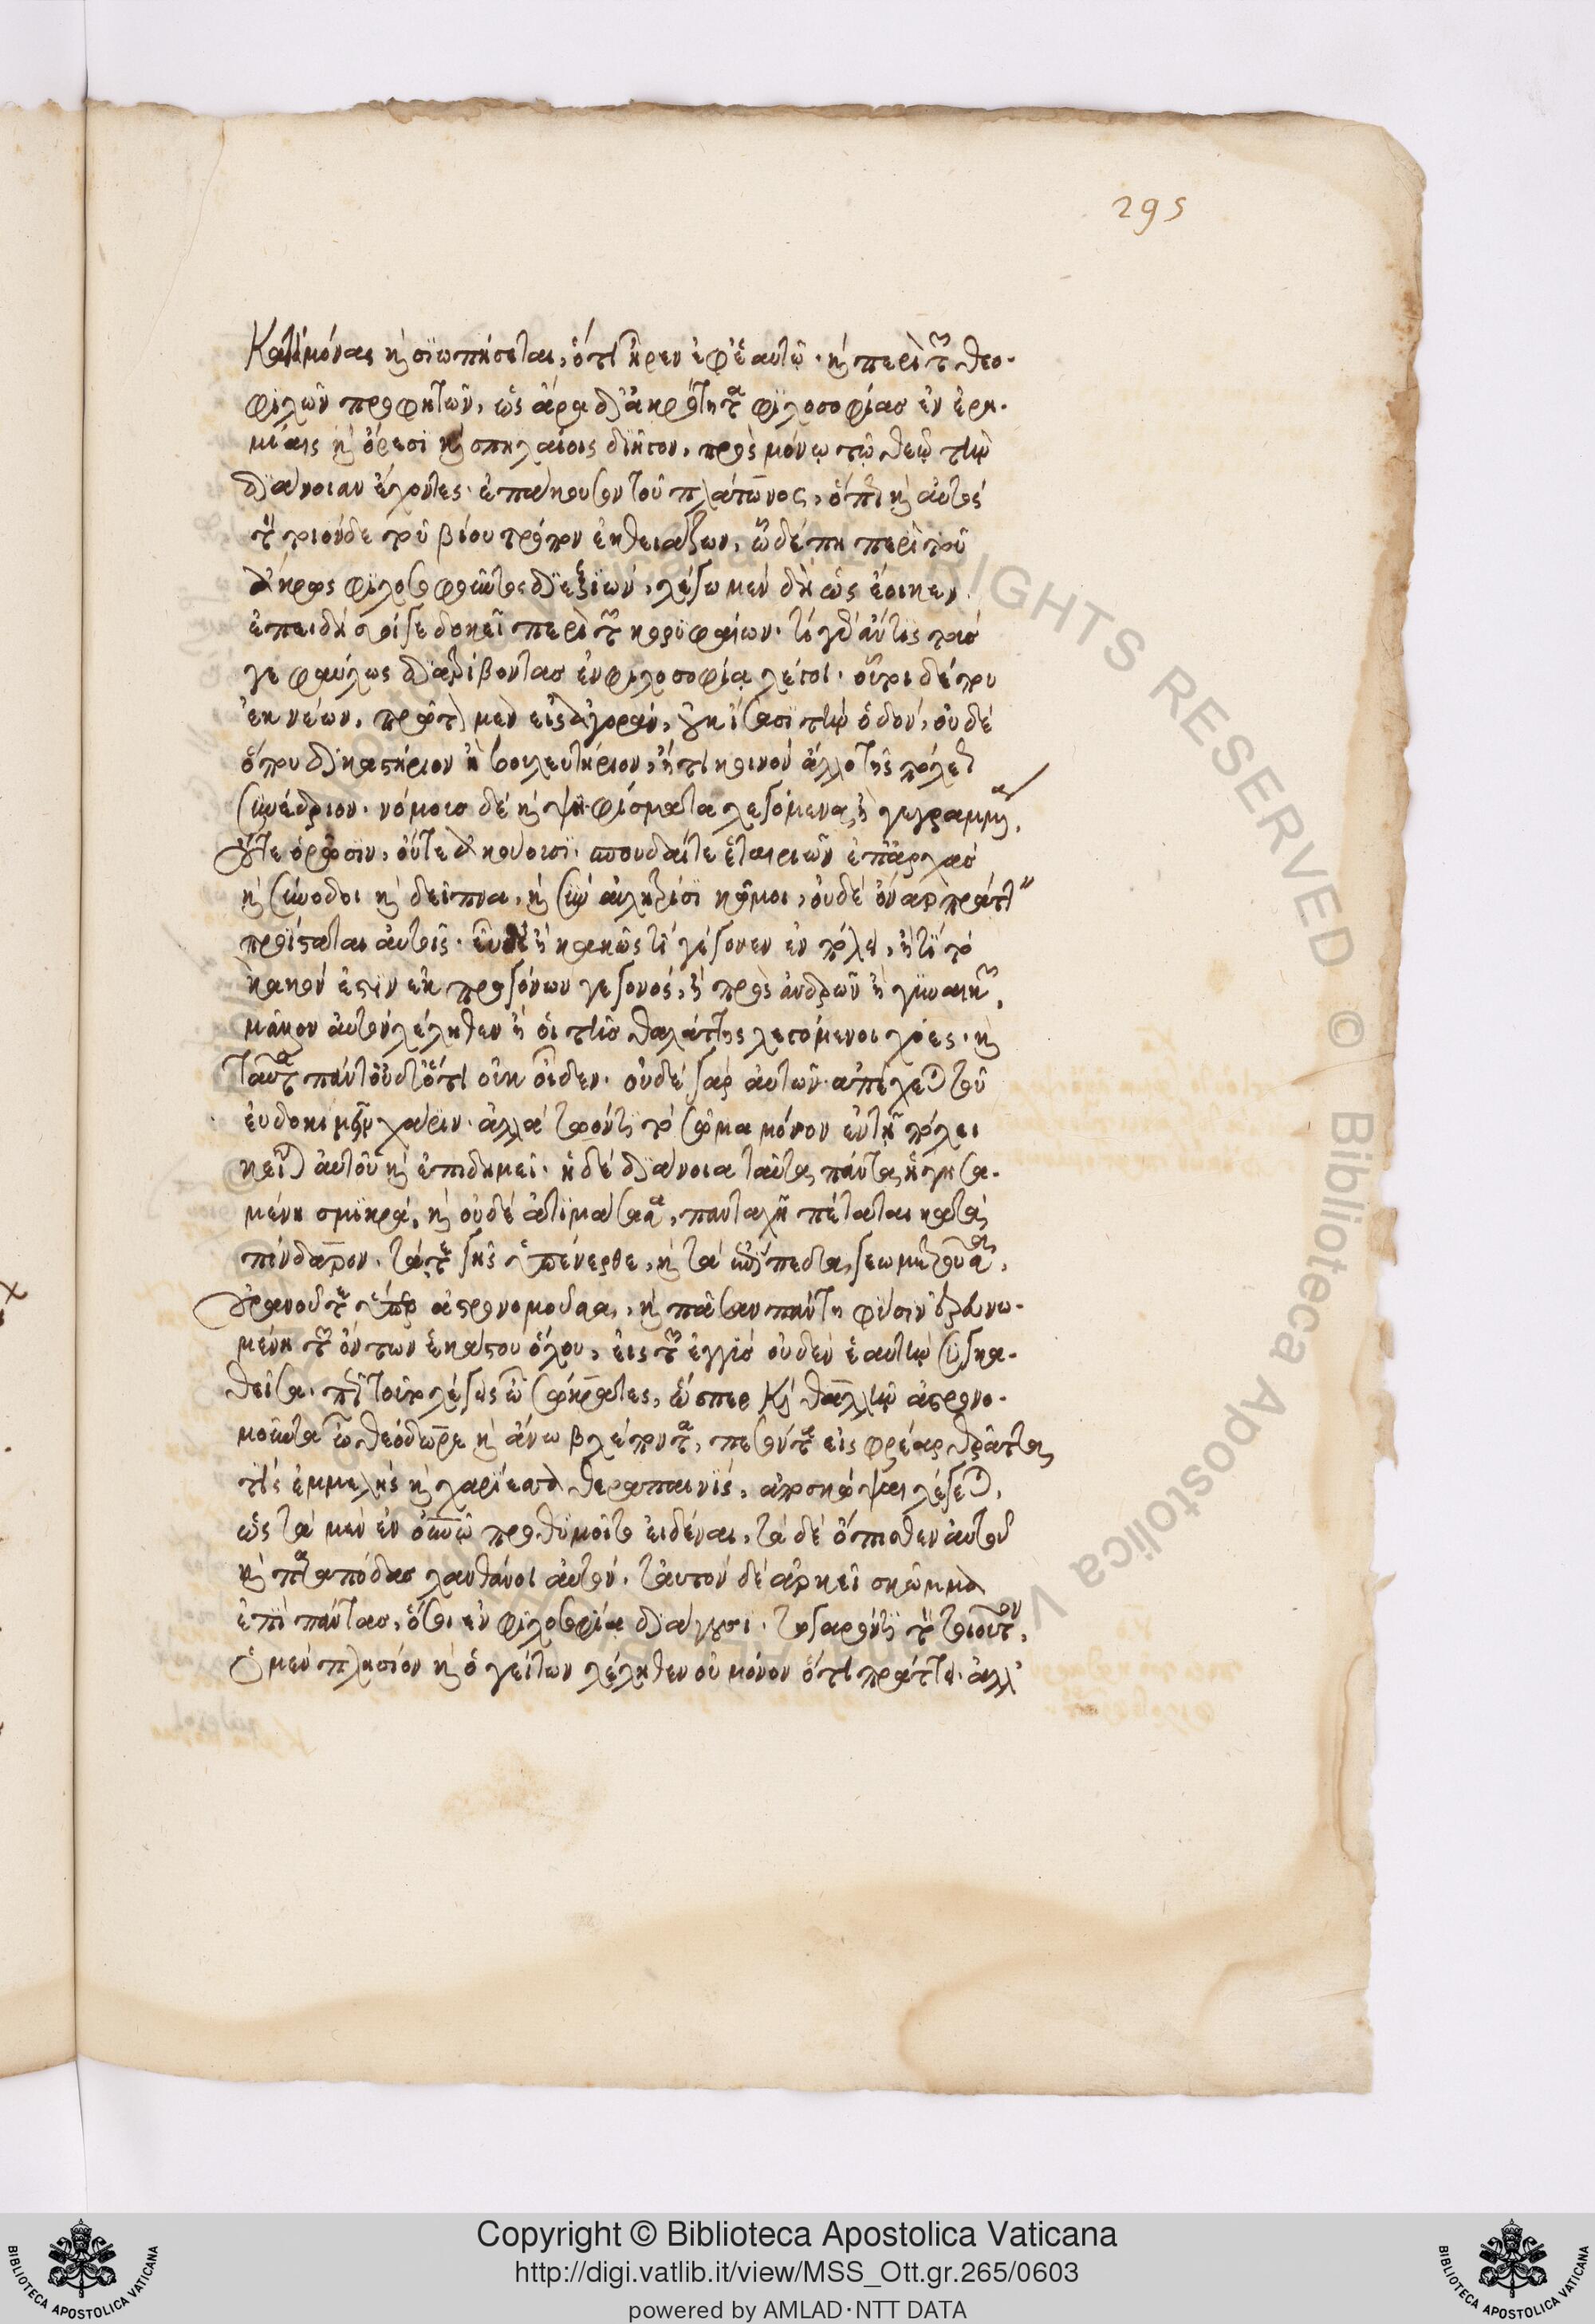 295
Καταμόνας κ σϊωπήσεται, ὅτι ἦρεν ἐφ' ἑαυτῷ. κ περὶ τῶν θεο-
φιλῶν προφητῶν, ὡς ἄρα δι' ἀκρότητα φιλοσοφίας ἐν ἐρη-
μίαις κ ὄρεσϊ κ σπηλαίοις διῆτον, πρὸς μόνῳ τῷ θεῷ τὴν
διάνοιαν ἔχοντες. ἐπάκουσον τοῦ πλάτωνος, ὅπη κ αὐτὸς
τὸν τοιόνδε τοῦ βίου τρόπον ἐκθειάζων, ὧδέ πη περὶ τοῦ
ἄκρως φιλοσοφοῦντος διεξϊών, λέγωμεν δὴ ὡς ἔοικεν
ἐπειδὴ σοί γε δοκεῖ περὶ τῶν κορυφαίων. τί γὰρ ἄν τις τούς
γε φαύλως διατρίβοντας ἐν φιλοσοφίᾳ λέγοι. οὗτοι δέ που
ἐκ νέων, πρῶτον μὲν εἰς ἀγορὰν, οὐκ ἴσασϊ τὴν ὁδὸν, οὐδὲ
ὅπου δικαστήριον ἢ βουλευτήριον, ἤ τι κοινὸν ἄλλο τῆς πόλεως
συνέδριον. νόμους δὲ κ ψηφίσματα λεγόμενα ἢ γεγραμμένα,
οὔτε ὁρῶσϊν, οὔτε ἀκούουσϊ. σπουδαί τε ἑταιριῶν ἐπ' ἀρχὰς
κ σύνοδοι κ δεῖπνα, κ σὺν αὐλητρίσϊ κῶμοι, οὐδὲ ὄναρ πράττειν
προσίσταται αὐτοῖς. εὖ δὲ ἢ κακῶς τί γέγονεν ἐν πόλει, ἤ τί τῳ
κακόν ἐστϊν ἐκ προγόνων γεγονὸς, ἢ πρὸς ἀνδρῶν ἢ γυναικῶν,
μᾶλλον αὐτὸν λέληθεν ἢ οἱ τῆς θαλάττης λεγόμενοι χόες. κ
ταῦτα πάντ' οὐδ' ὅτι οὐκ οἶδεν. οὐδὲ γὰρ αὐτῶν ἀπέχεται τοῦ
εὐδοκιμεῖν χάριν. ἀλλὰ τῷ ὄντι τὸ σῶμα μόνον ἐν τῇ πόλει
κεῖται αὐτοῦ κ ἐπιδημεῖ. ἡ δὲ διάνοια ταῦτα πάντα ἡγησα-
μένη σμϊκρά, κ οὐδὲ ἀτϊμάσασα, πανταχῆ πέταται κατὰ
πίνδαρον. τά τε γῆς ὑπένερθε, κ τὰ ἐπίπεδα, γεωμετροῦσα,
οὐρανοῦ τε ὕπερ ἀστρονομοῦσα, κ πᾶσαν πάντη φύσιν ἐρευνω-
μένη τῶν ὄντων ἑκάστου ὅλου, εἰς τῶν ἐγγὺς οὐδὲν ἑαυτὴν συγκα-
θεῖσα. πῆ τοῦτο λέγεις ὦ σώκρατες, ὥσπερ κ θαλῆν ἀστρονο-
μοῦντα ὦ θεόδωρε κ ἄνω βλέποντα, πεσόντα εἰς φρέαρ θρᾶττα
τὶς ἐμμελὴς κ χαρίεσσα θεραπαινὶς, ἀποσκῶψαι λέγεται,
ὡς τὰ μὲν ἐν οὐρανῷ προθυμοῖτο εἰδέναι, τὰ δὲ ὄπισθεν αὐτοῦ
κ παρὰ πόδας λανθάνοι αὐτόν. ταὐτὸν δὲ ἀρκεῖ σκῶμμα
ἐπὶ πάντας, ὅσοι ἐν φιλοσοφίᾳ διάγουσϊ. τῷ γὰρ ὄντι τὸν τοιοῦτον,
ὁ μὲν πλησίον κ ὁ γείτων λέληθεν οὐ μόνον ὅ τι πράττει. ἀλλ'
Copyright © Biblioteca Apostolica Vaticana
http://digi.vatlib.it/view/MSS_Ott.gr.265/0603
powered by AMLAD·NTT DATA